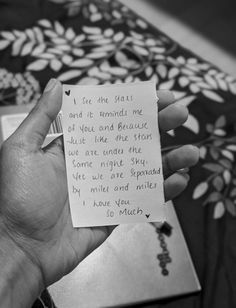 I see the stars
and it reminds me
of you and Because
Just like the stars
we are under the
Same night sky.
Yet we are seperated
by miles and miles
I love you
So Much